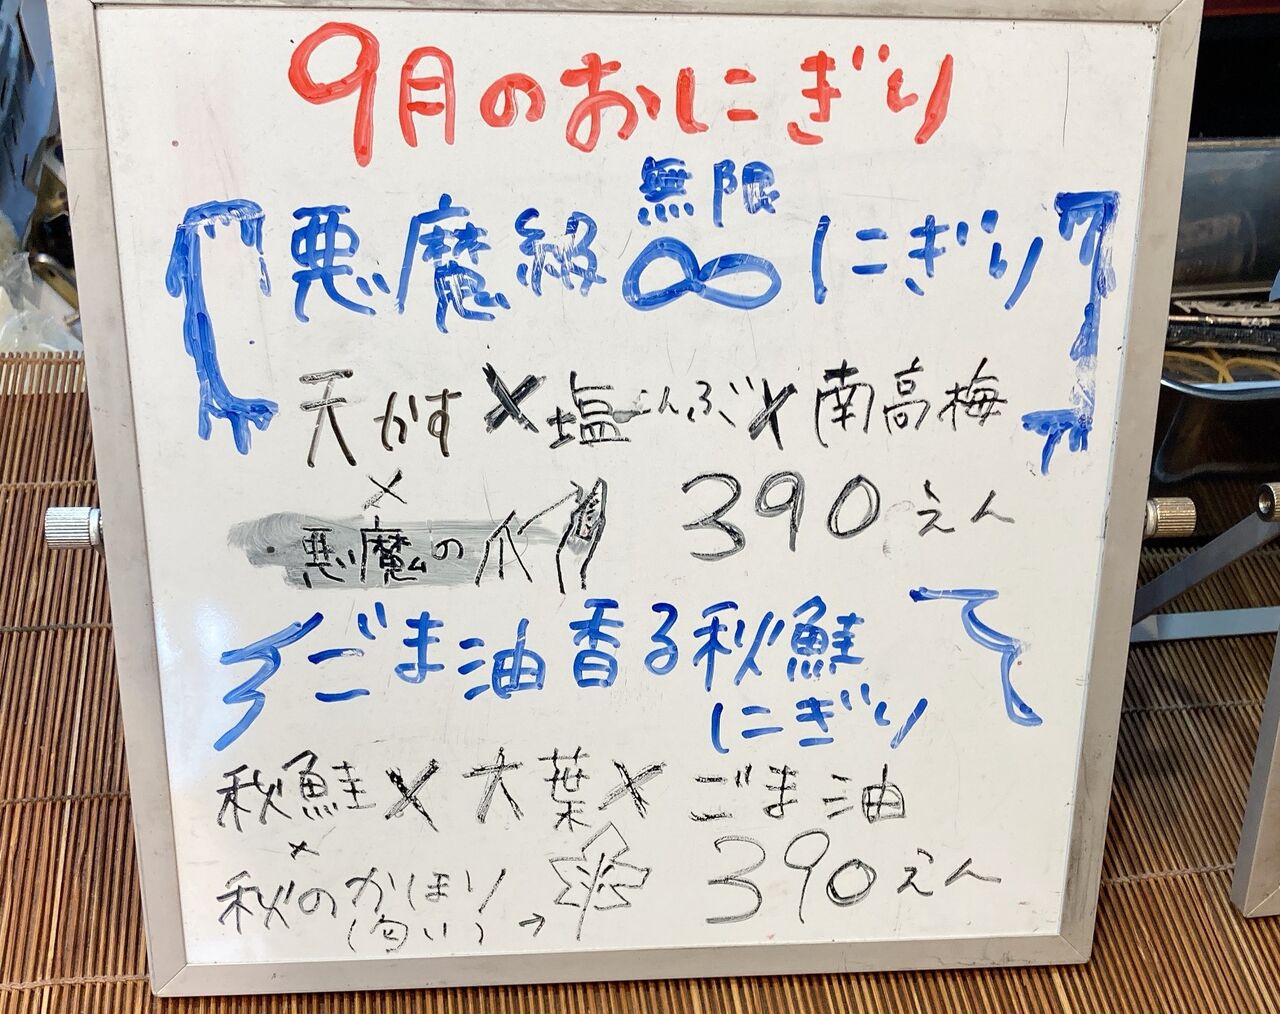 9月のおにぎり
無限
悪魔級∞にぎり
天かす×塩こんぶ×南高梅
×
悪魔の爪 390えん
ごま油香る秋鮭
にぎり
秋鮭×大葉×ごま油
×
秋のかほり 390えん
(匂い)→